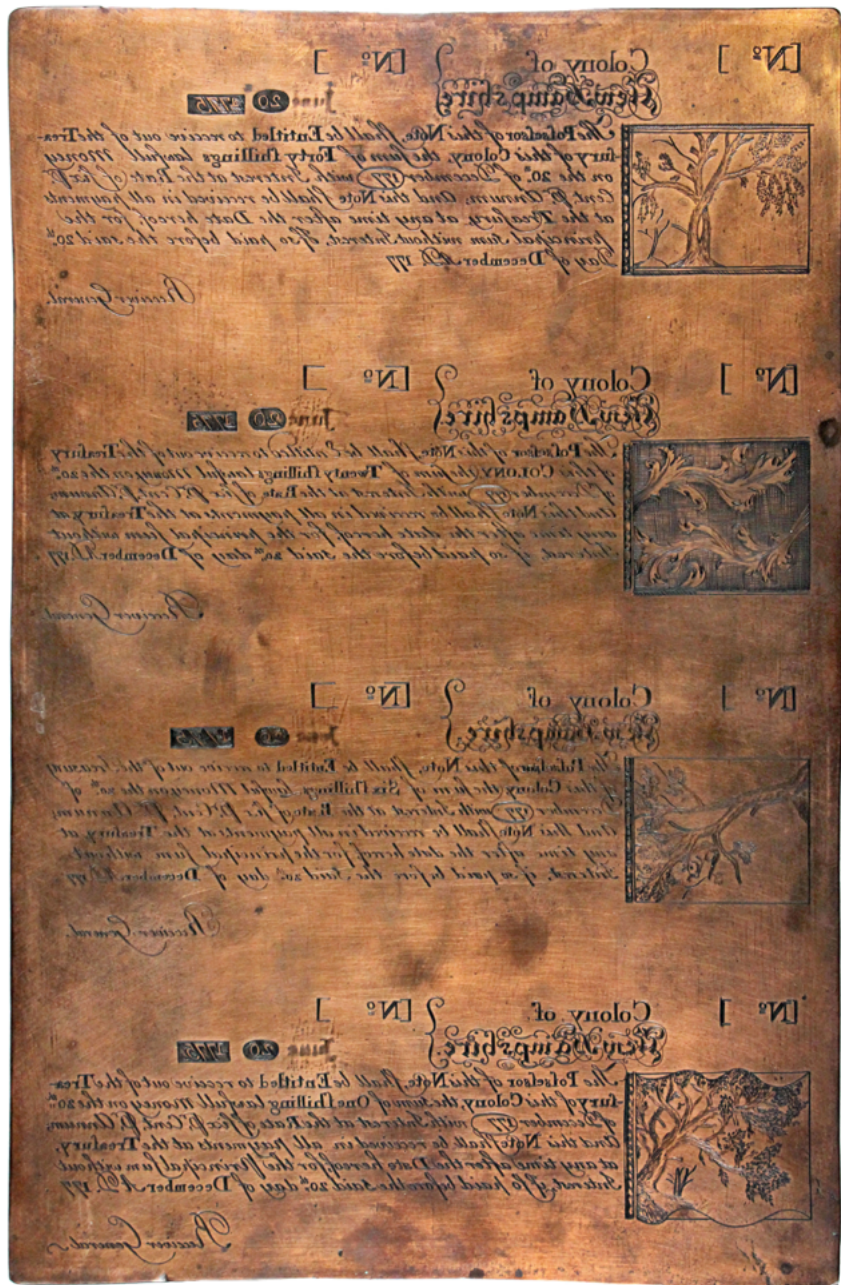 [Nº ] Colony of [Nº ]
New Hampshire
June 20 1775
The Possessor of this Note, shall be Entitled to receive out of the Trea-
sury of this Colony, the sum of Forty shillings lawfull Money
on the 20th of December 177 with Interest at the Rate of six P.
Cent P. Annum, And this Note shall be received in all payments
at the Treasury at any time after the Date hereof, for the
principal sum without Interest, if so paid before the said 20th
Day of December A.D. 177
Receiver General.
[Nº ] Colony of [Nº ]
New Hampshire
June 20 1775
The Possessor of this Note, shall be Entitled to receive out of the Treasury
of this COLONY the sum of Twenty shillings lawful Money on the 20th
of December 177 with Interest at the Rate of six P. Cent P. Annum,
And this Note shall be received in all payments at the Treasury at
any time after the date hereof, for the principal sum without
Interest, if so paid before the said 20th day of December A.D. 177
Receiver General.
[Nº ] Colony of [Nº ]
New Hampshire
June 20 1775
The Possessor of this Note, shall be Entitled to receive out of the Treasury
of this Colony the sum of Six shillings lawful Money on the 20th of
December 177 with Interest at the Rate of six P. Cent P. Annum,
And this Note shall be received in all payments at the Treasury at
any time after the date hereof, for the principal sum without
Interest, if so paid before the said 20th day of December A.D. 177
Receiver General.
[Nº ] Colony of [Nº ]
New Hampshire.
June 20 1775
The Possessor of this Note, shall be Entitled to receive out of the Trea-
sury of this Colony, the sum of One shilling lawfull Money on the 20th
of December 177 with Interest at the Rate of six P. Cent P. Annum,
And this Note shall be received in all payments at the Treasury,
at any time after the Date hereof, for the Principal sum without
Interest, if so paid before the said 20th day of December A.D. 177
Receiver General.